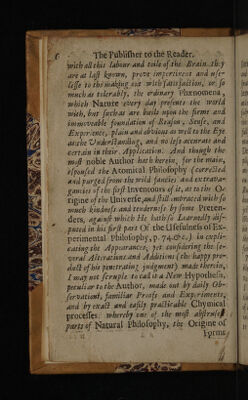 6 The Publisher to the Reader.
with all this labour and toile of the Brain, they
are at last known, prove impertinent and use-
lesse to the making out with satisfaction, or so
much as tolerably, the ordinary Phænomena,
which Nature every day presents the world
with, but such as are built upon the firme and
immoveable foundation of Reason, Sense, and
Experience, plain and obvious as well to the Eye
as the Understanding, and no less accurate and
certain in their Application. And though the
most noble Author hath herein, for the main,
espoused the Atomical Philosophy (corrected
and purged from the wild fancies and extrava-
gancies of the first Inventours of it, as to the O-
rigine of the Universe, and still imbraced with so
much kindness and tenderness by some Preten-
dets, against which He hath so Learnedly dis-
puted in his first part Of the Usefulness of Ex-
perimental Philosophy, p. 74. &c.) in expli-
cating the Appearances, yet considering the se-
veral Alterations and Additions (the happy pro-
duct of his penetrating judgment) made therein,
I may not scruple to call it a New Hypothesis,
peculiar to the Author, made out by daily Ob-
servations, familiar Proofs and Experiments,
and by exact and easily practicable Chymical
processes: whereby one of the most abstruse
parts of Natural Philosophy, the Origine of
Forms